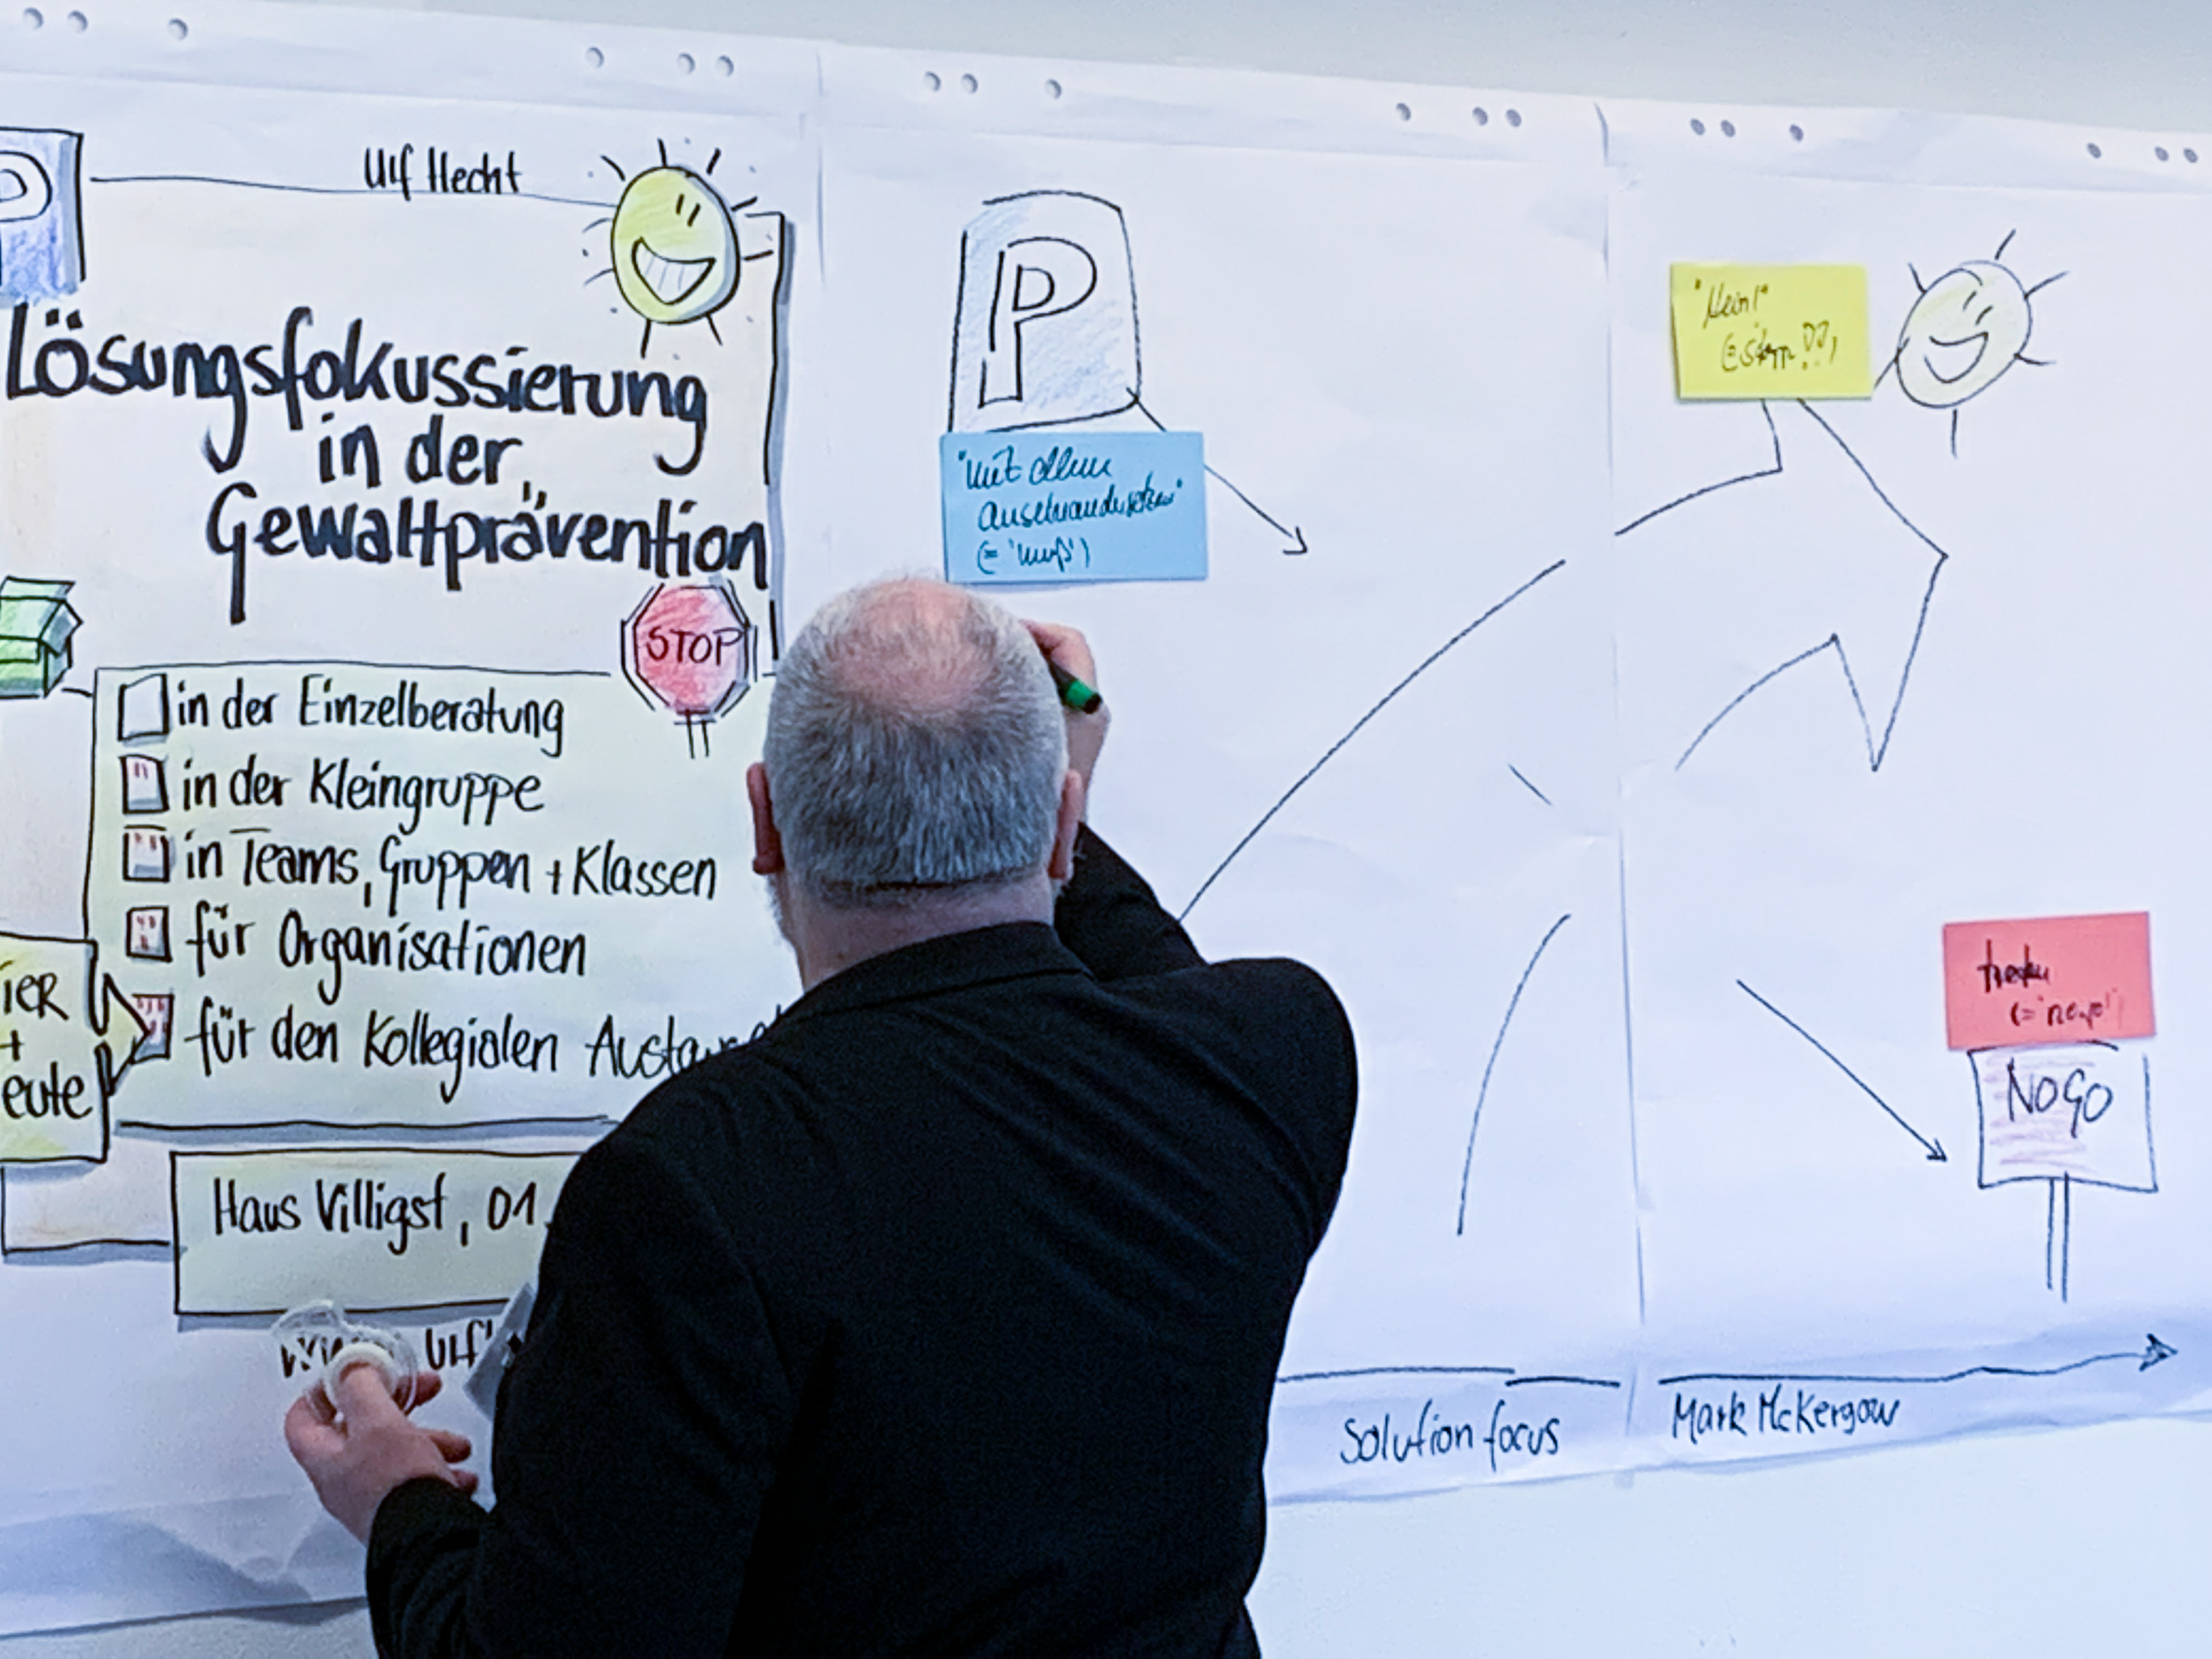 P
Ulf Hecht
Lösungsfokussierung
in der
Gewaltprävention
STOP
in der Einzelberatung
in der Kleingruppe
in Teams, Gruppen + Klassen
für Organisationen
für den Kollegialen
Haus Villigst, 01.
P
"mit allem
auseinandersetzen"
(= 'muß')
"Nein!"
NOGO
Solution focus
Mark McKergow